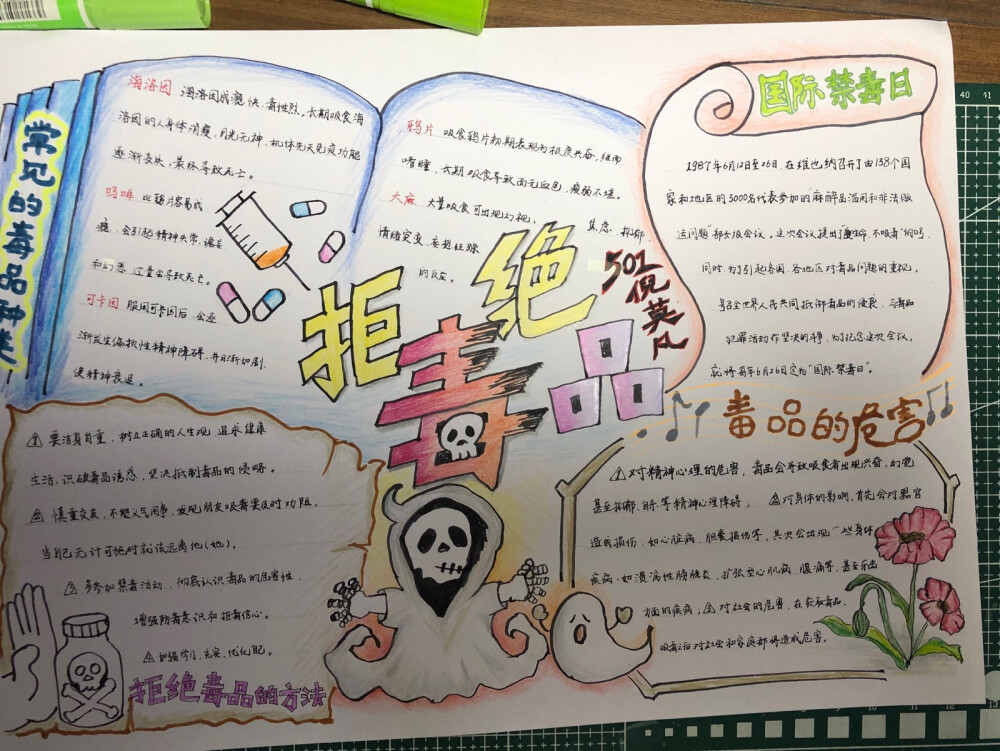 常见的毒品种类
海洛因 海洛因成瘾快、毒性烈。长期吸食海
洛因的人身体消瘦、目光无神、机体先天免疫功能
逐渐丧失、最终导致死亡。
吗啡 比鸦片容易成
瘾、会引起精神失常、谵妄
和幻想 过量会导致死亡。
可卡因 服用可卡因后、会逐
渐发生偏执性精神障碍、并日渐加剧
使精神衰退。
鸦片 吸食鸦片初期表现为极度兴奋、继而
嗜睡、长期吸食导致面无血色、瘦弱不堪。
大麻 大量吸食可出现幻视、焦虑、抑郁、
情绪突变、妄想狂躁
的反应。
拒绝
毒品
501
倪英凡
国际禁毒日
1987年6月12日至26日、在维也纳召开了由138个国
家和地区的3000名代表参加的麻醉品滥用和非法贩
运问题"部长级会议。这次会议提出"爱生命、不吸毒"的口号
同时、为了引起各国、各地区对毒品问题的重视。
号召全世界人民共同抵御毒品的侵袭、与毒品
犯罪活动作坚决的斗争、为了纪念这次会议。
将每年6月26日定为"国际禁毒日"。
1 要洁身自重、树立正确的人生观 追求健康
生活、识破毒品诱惑、坚决抵制毒品的侵略。
2 慎重交友、不想义气用事、发现朋友吸毒要及时劝阻、
当自己无计可施时就该远离他(她)。
3 多参加禁毒活动、彻底认识毒品的危害性、
增强防毒意识和拒毒信心。
4 加强学习、充实、优化自己。
拒绝毒品的方法
毒品的危害
1 对精神心理的危害、毒品会导致吸食者出现兴奋、幻觉
甚至抑郁、等精神心理障碍; 2 对身体的影响、首先会对器官
造成损伤、如心脏病、胆囊损伤等、其次会出现一些身体
疾病、如溃疡性膀胱炎、扩张型心肌病、腹痛等、甚至
方面的疾病; 3 对社会的危害、在毒品
吸毒之后对社会和家庭都将造成危害。